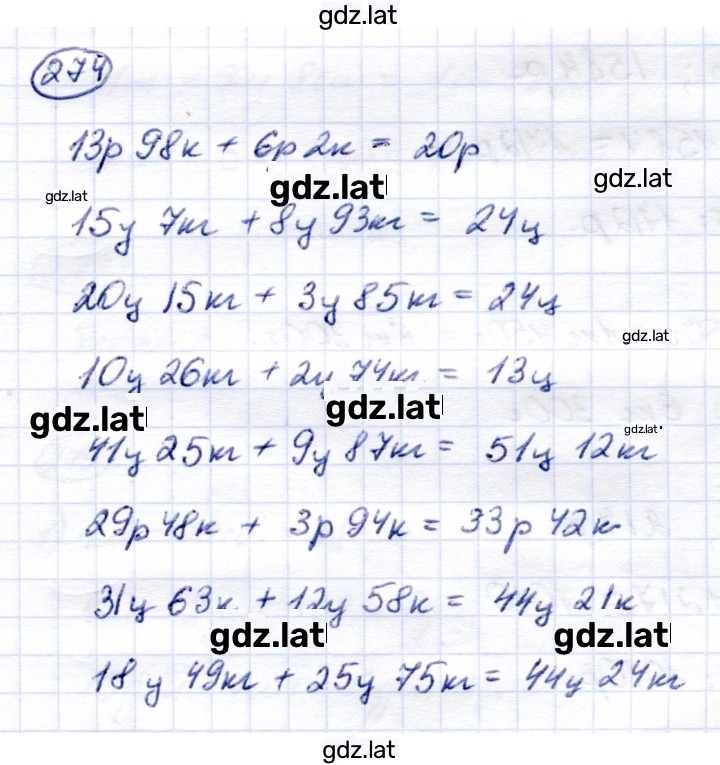 gdz.lat
274
13р 98к + 6р 2к = 20р
gdz.lat gdz.lat
gdz.lat
15ц 7кг + 8ц 93кг = 24ц
20ц 15кг + 3ц 85кг = 24ц
gdz.lat
10ц 26кг + 2ц 74кг = 13ц
gdz.lat gdz.lat
gdz.lat
41ц 25кг + 9ц 87кг = 51ц 12кг
29р 48к + 3р 94к = 33р 42к
31ц 63к + 12ц 58к = 44ц 21к
gdz.lat gdz.lat
18ц 49кг + 25ц 75кг = 44ц 24кг
gdz.lat